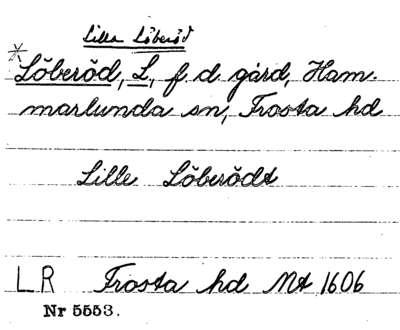 Lilla Löberöd
*Löberöd, L, f. d. gård, Ham-
marlunda sn, Frosta hd
Lille Löberödt
LR Frosta hd Mt 1606
Nr 5553.